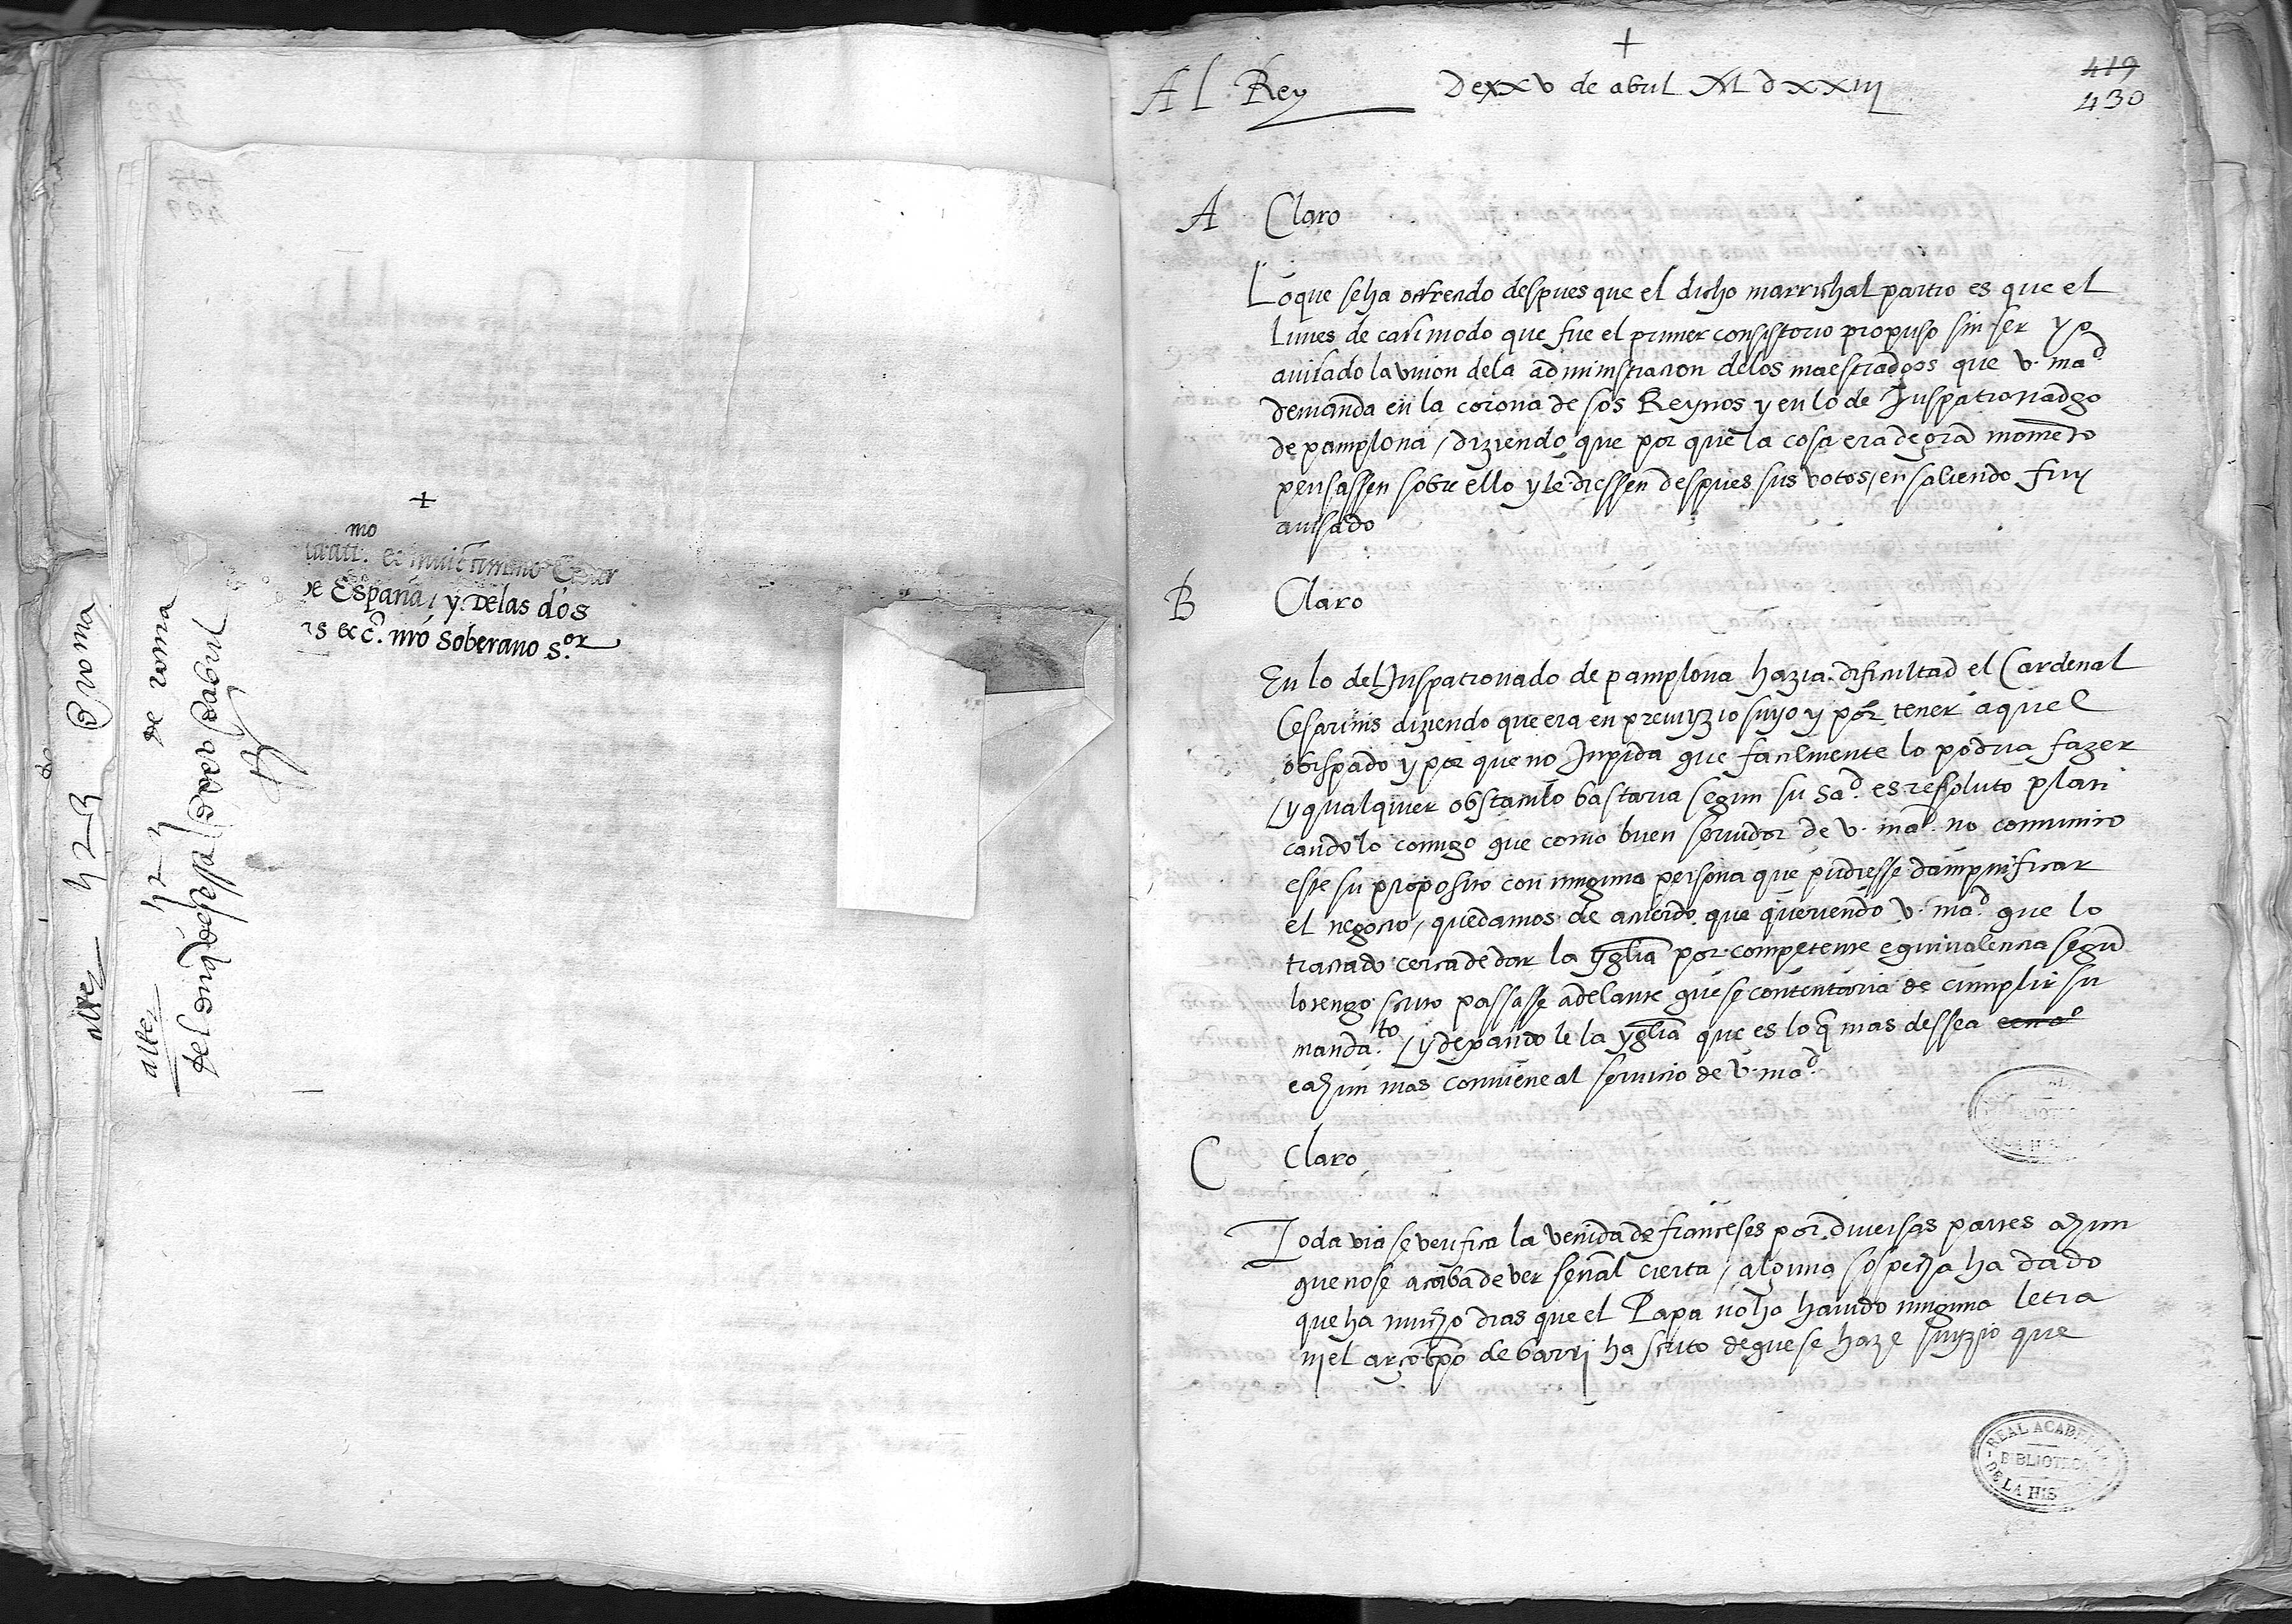 +
mo
et invictissimo Cesar
de España, y Delas dos
ns &c.ª nro Soberano S.or
@ roma
alte
de roma
del duq̃ de sessa
+
Al Rey
De xxv de abril M d xxiij
419
430
A Claro
Lo que se ha ofrecido despues que el dicho marrichal partio es que el
Lunes de casimodo que fue el primer consistorio propuso sin ser yo
auisado la vnion dela administracion delos maestradgos que v. ma.d
demanda en la corona de sos Reynos y en lo de Juspatronadgo
de pamplona / diziendo que por que la cosa era de grã momẽto
pensassen sobre ello y le diessen despues sus votos / en saliendo fuy
auisado
B Claro
En lo del Juspatronado de pamplona hazia dificultad el Cardenal
Cesarinis diziendo que era en preiuyzio suyo y por tener aquel
obispado y por que no Inpida que facilmente lo podria fazer
/ y qualquier obstaculo bastaria segun su Sa.d es resoluto plati
candolo comigo que como buen seruidor de v. ma.d no comunico
este su proposito con ninguna persona que pudiesse dampnificar
el negocio / quedamos de acuerdo que queriendo v. ma.d que lo
tractado cerca de dar la yglia por competente equiualencia segũ
lo tengo scrito passasse adelante que se contentaria de cumplir su
manda.to / y dexando le la yglia que es lo q̃ mas dessea
e ahun mas conuiene al seruicio de v. ma.d
C Claro
Toda via se verifica la venida de franceses por diuersas partes ahun
que no se acaba de ver señal cierta / alguna sospecha ha dado
que ha mucho dias que el Papa no ha hauido ninguna letra
ni el arçobpo de barri ha scrito de que se haze juyzio que
REAL ACADEMIA
BIBLIOTECA
DE LA HIS